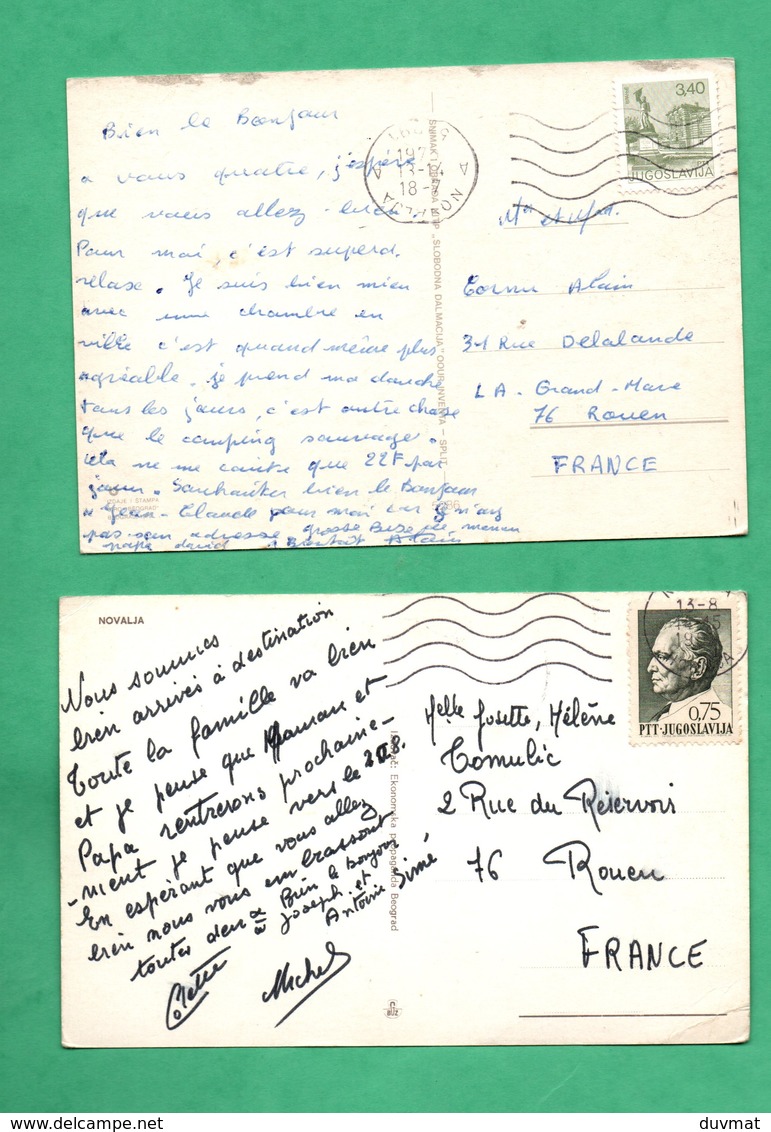 Bien le Bonjour
a vous quatre, j'espère
que vous allez bien.
Pour moi, c'est superd.
relaxe. Je suis bien mieu
avec une chambre en
ville c'est quand même plus
agréable. je prend ma douche
tous les jours, c'est autre chose
que le camping sauvage.
cela ne me coute que 22F par
jour. Souhaiter bien le Bonjour
a Jean-Claude pour moi car je n'ai
pas son adresse grosse Bise
papa david a Bientot Alain
SNIMAK I OBRADA
"SLOBODNA DALMACIJA" OOUR INVENTA - SPLIT
18-
NOVALJA
3,40
JUGOSLAVIJA
Mr et Mme.
Alain
31 Rue Delalande
LA-Grand-Mare
76 Rouen
FRANCE
NOVALJA
Nous sommes
bien arrivés à destination
Toute la famille va bien
et je pense que Maman et
Papa rentrerons prochaine-
-ment je pense vers le 20.8.
En espérant que vous allez
bien nous vous embrassont
toutes deux
Bien le bonjour
Joseph. et
Antoine Simé
Colette
Michel
Izdavač: Ekonomska propaganda Beograd
13-8
0,75
PTT·JUGOSLAVIJA
Melle Josette, Hélène
Tomulic
2 Rue du Réservoir
76 Rouen
FRANCE
duvmat